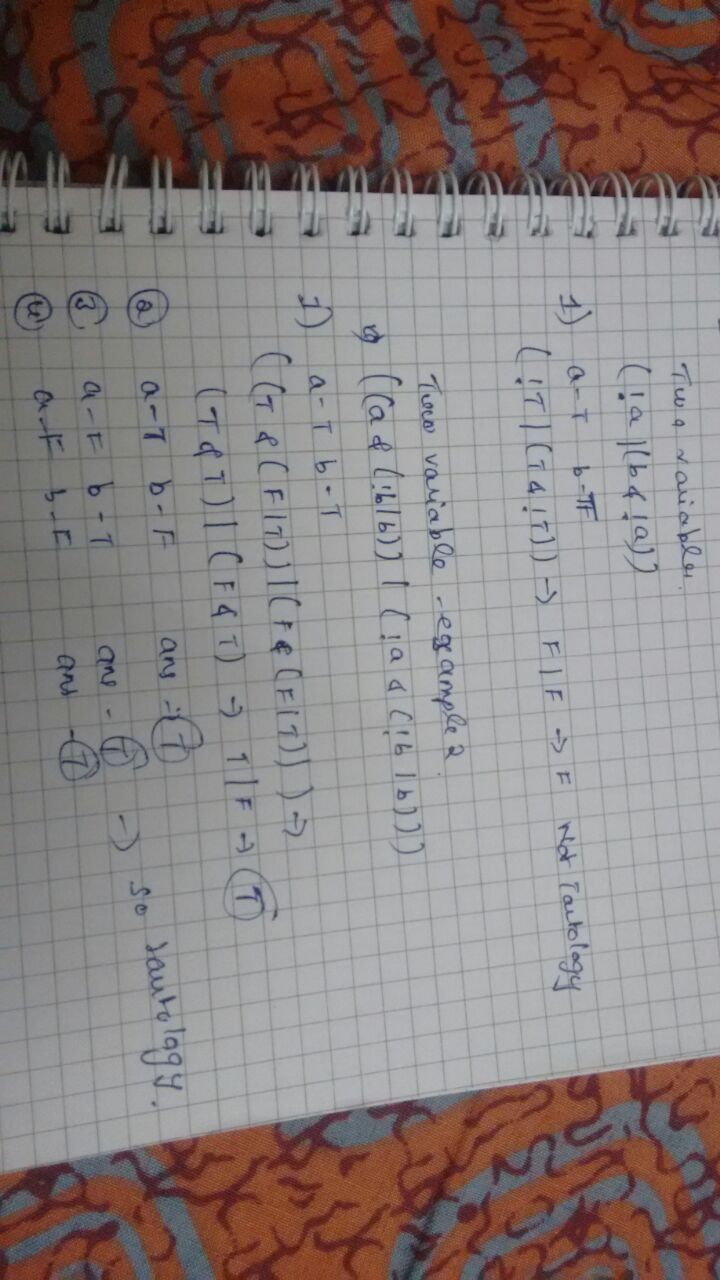 Two variable.
(!a|(b&!a))
1) a-T b-TF
(!T|(T&!T)) -> F|F -> F Not Tautology
Two variable - example 2
((a&(!b|b))|(!a&(!b|b)))
1) a-T b-T
((T&(F|T))|(F&(F|T))) ->
(T&T)|(F&T) -> T|F -> T
2 a-T b-F ans - T
3 a-F b-T ans - T -> so tautology.
4 a-F b-F ans - T